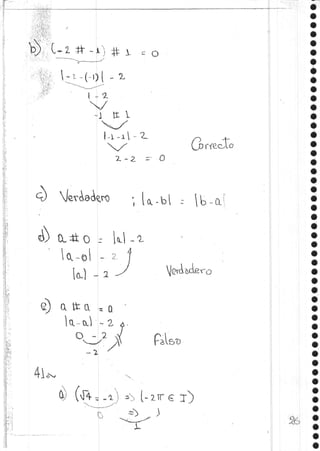 b) (-2 # -1) # 1 = 0
|-2-(-1)| - 2
1 - 2
-1 # 1
|-1-1| - 2
2 - 2 = 0
Correcto
c) Verdadero ; |a-b| = |b-a|
d) a # 0 = |a| - 2
|a-0| - 2
|a| - 2
Verdadero
e) a # a = a
|a-a| - 2
0 - 2
- 2
Falso
41.
a) (√4 = -2) => (-2π ∈ I)
0 => 1
1
26